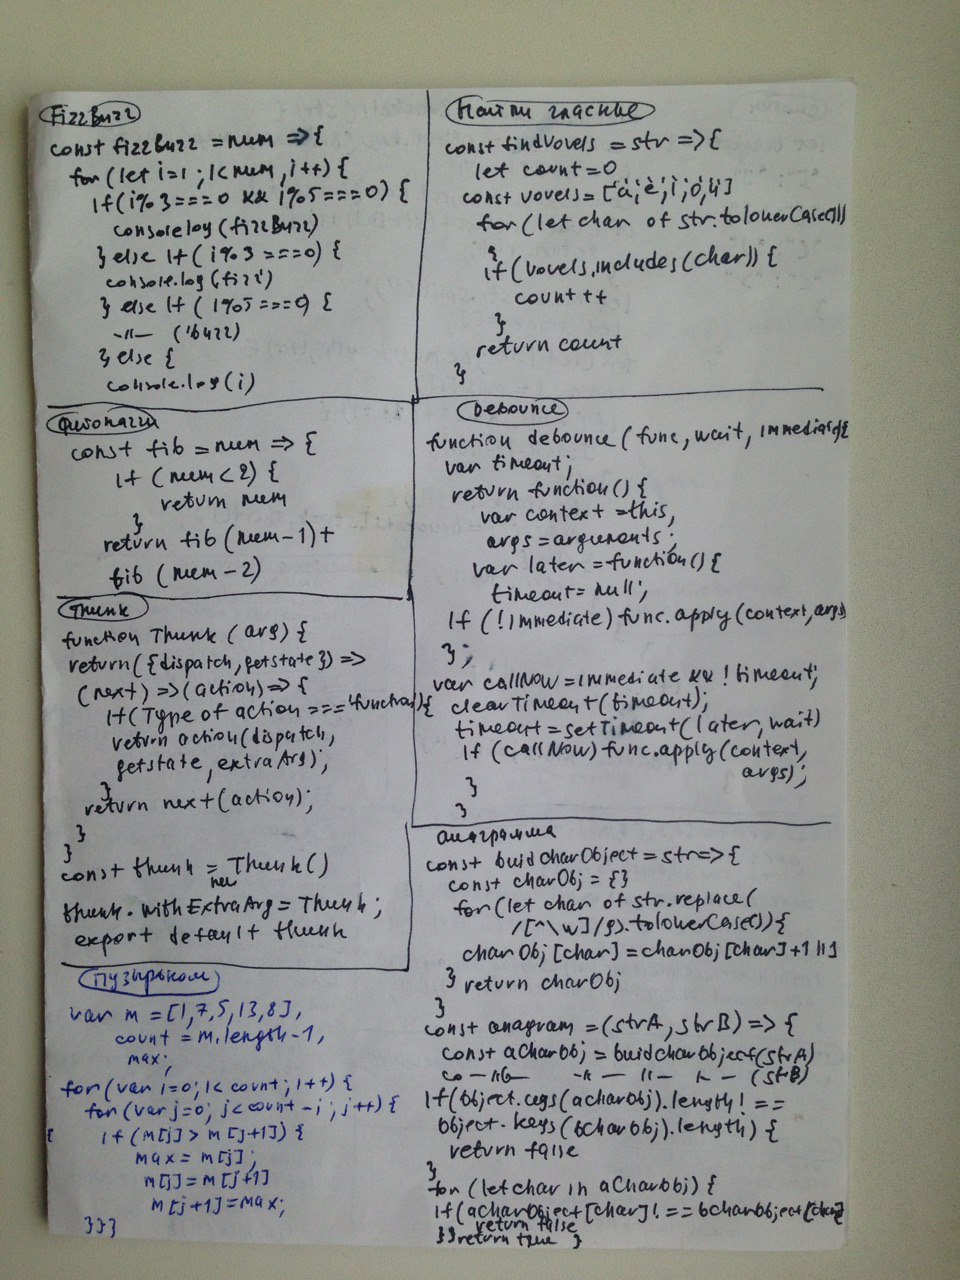 FizzBuzz
const fizzBuzz = num => {
for (let i=1; i<num, i++) {
if(i%3===0 && i%5===0) {
console log (fizzBuzz)
} else if (i%3 ===0) {
console.log (fizz')
} else if ( i%5===0) {
-〃- ('buzz)
} else {
console.log (i)
Фибоначчи
const fib = num => {
if (num<2) {
return num
}
return fib (num-1)+
fib (num-2)
Thunk
function Thunk ( arg) {
return({dispatch, getstate}) =>
(next) => (action) => {
if(Type of action === 'function'){
return action(dispatch,
getstate, extraArg);
}
return next (action);
}
}
const thunk = Thunk()
thunk. withExtraArg = Thunk;
export default thunk
Пузырьком
var m = [1,7,5,13,8],
count = m.length-1,
max;
for (var i=0; i< count; i++) {
for (var j=0; j<count-i; j++) {
if (m[j] > m [j+1]) {
max = m[j];
m[j]=m[j+1]
m[j+1]=max;
}}}
Найти гласные
const findVovels = str => {
let count=0
const vovels= ['a','e','i','o','u']
for (let char of str.tolowerCase()))
}
if (vovels.includes(char)) {
count++
}
return count
}
Debounce
function debounce ( func, wait, immediate){
var timeout;
return function () {
var context =this,
args = arguments;
var later = function() {
timeout= null;
if (!immediate) func.apply (context, args)
};
var callNow = immediate && !timeout;
clear Timeout (timeout);
timeout = set Timeout (later, wait)
if (callNow) func.apply (context,
args);
}
}
анаграмма
const buidcharObject = str=> {
const charObj = {}
for (let char of str.replace(
/[^\w]/g).tolowerCase()){
charObj [char] = charObj [char]+1 ||1
} return charObj
}
const anagram =(strA, strB) => {
const acharObj = buidcharobject(strA)
(strB)
if(object.cegs(acharobj).length! ==
object. keys (bcharobj).length) {
return false
}
for (let char in aCharobj) {
if(acharobject[char]! ==bcharobject[char]{
return false
}} return true }